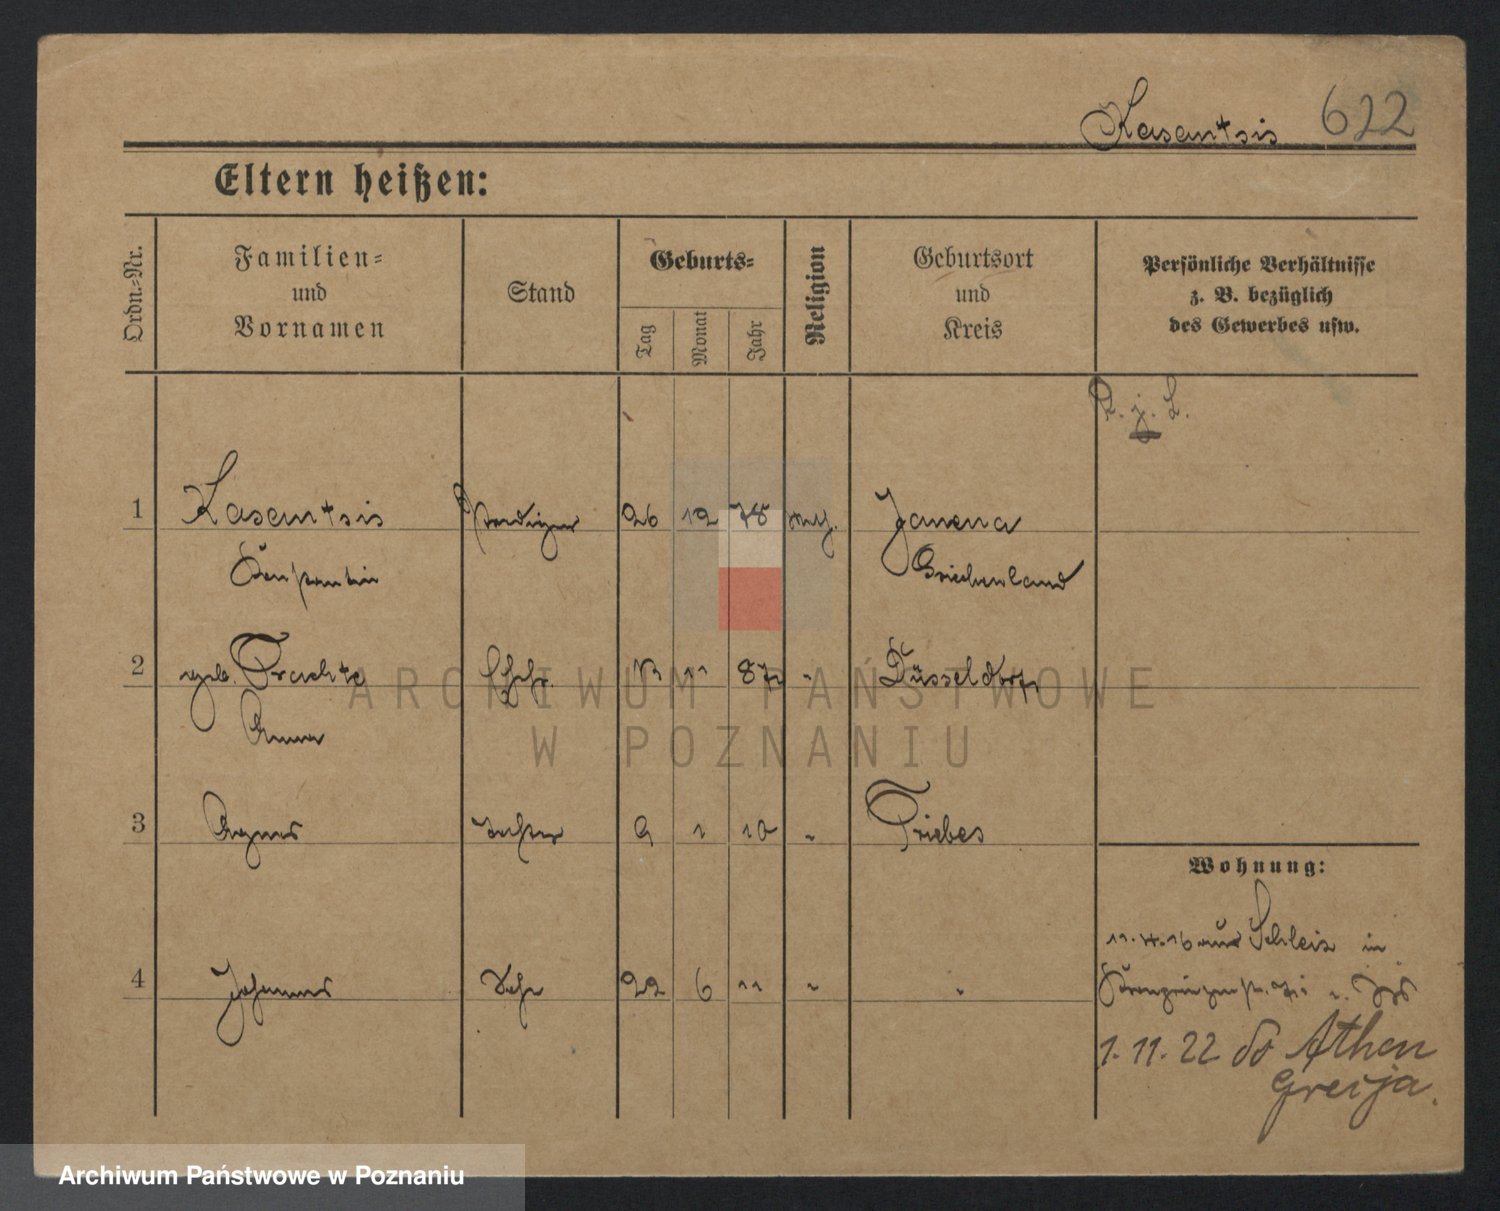 Kasantsis 622
Eltern heißen:
Ordn.-Nr.
Familien=
und
Vornamen
Stand
Geburts=
Tag
Monat
Jahr
Religion
Geburtsort
und
Kreis
Persönliche Verhältnisse
z. B. bezüglich
des Gewerbes usw.
1 Kasantsis 26 12 78 Janena
Konstantin Griechenland
2 geb. 11 87 " Düsseldorf
Anna
3 Agnes Tochter 9 1 10 " Triebes
Wohnung:
11.4.16 aus Schleiz in
4 Johannes Sohn 22 6 11 " "
1. 11. 22 do Athen
Grecja.
ARCHIWUM PAŃSTWOWE
W POZNANIU
Archiwum Państwowe w Poznaniu